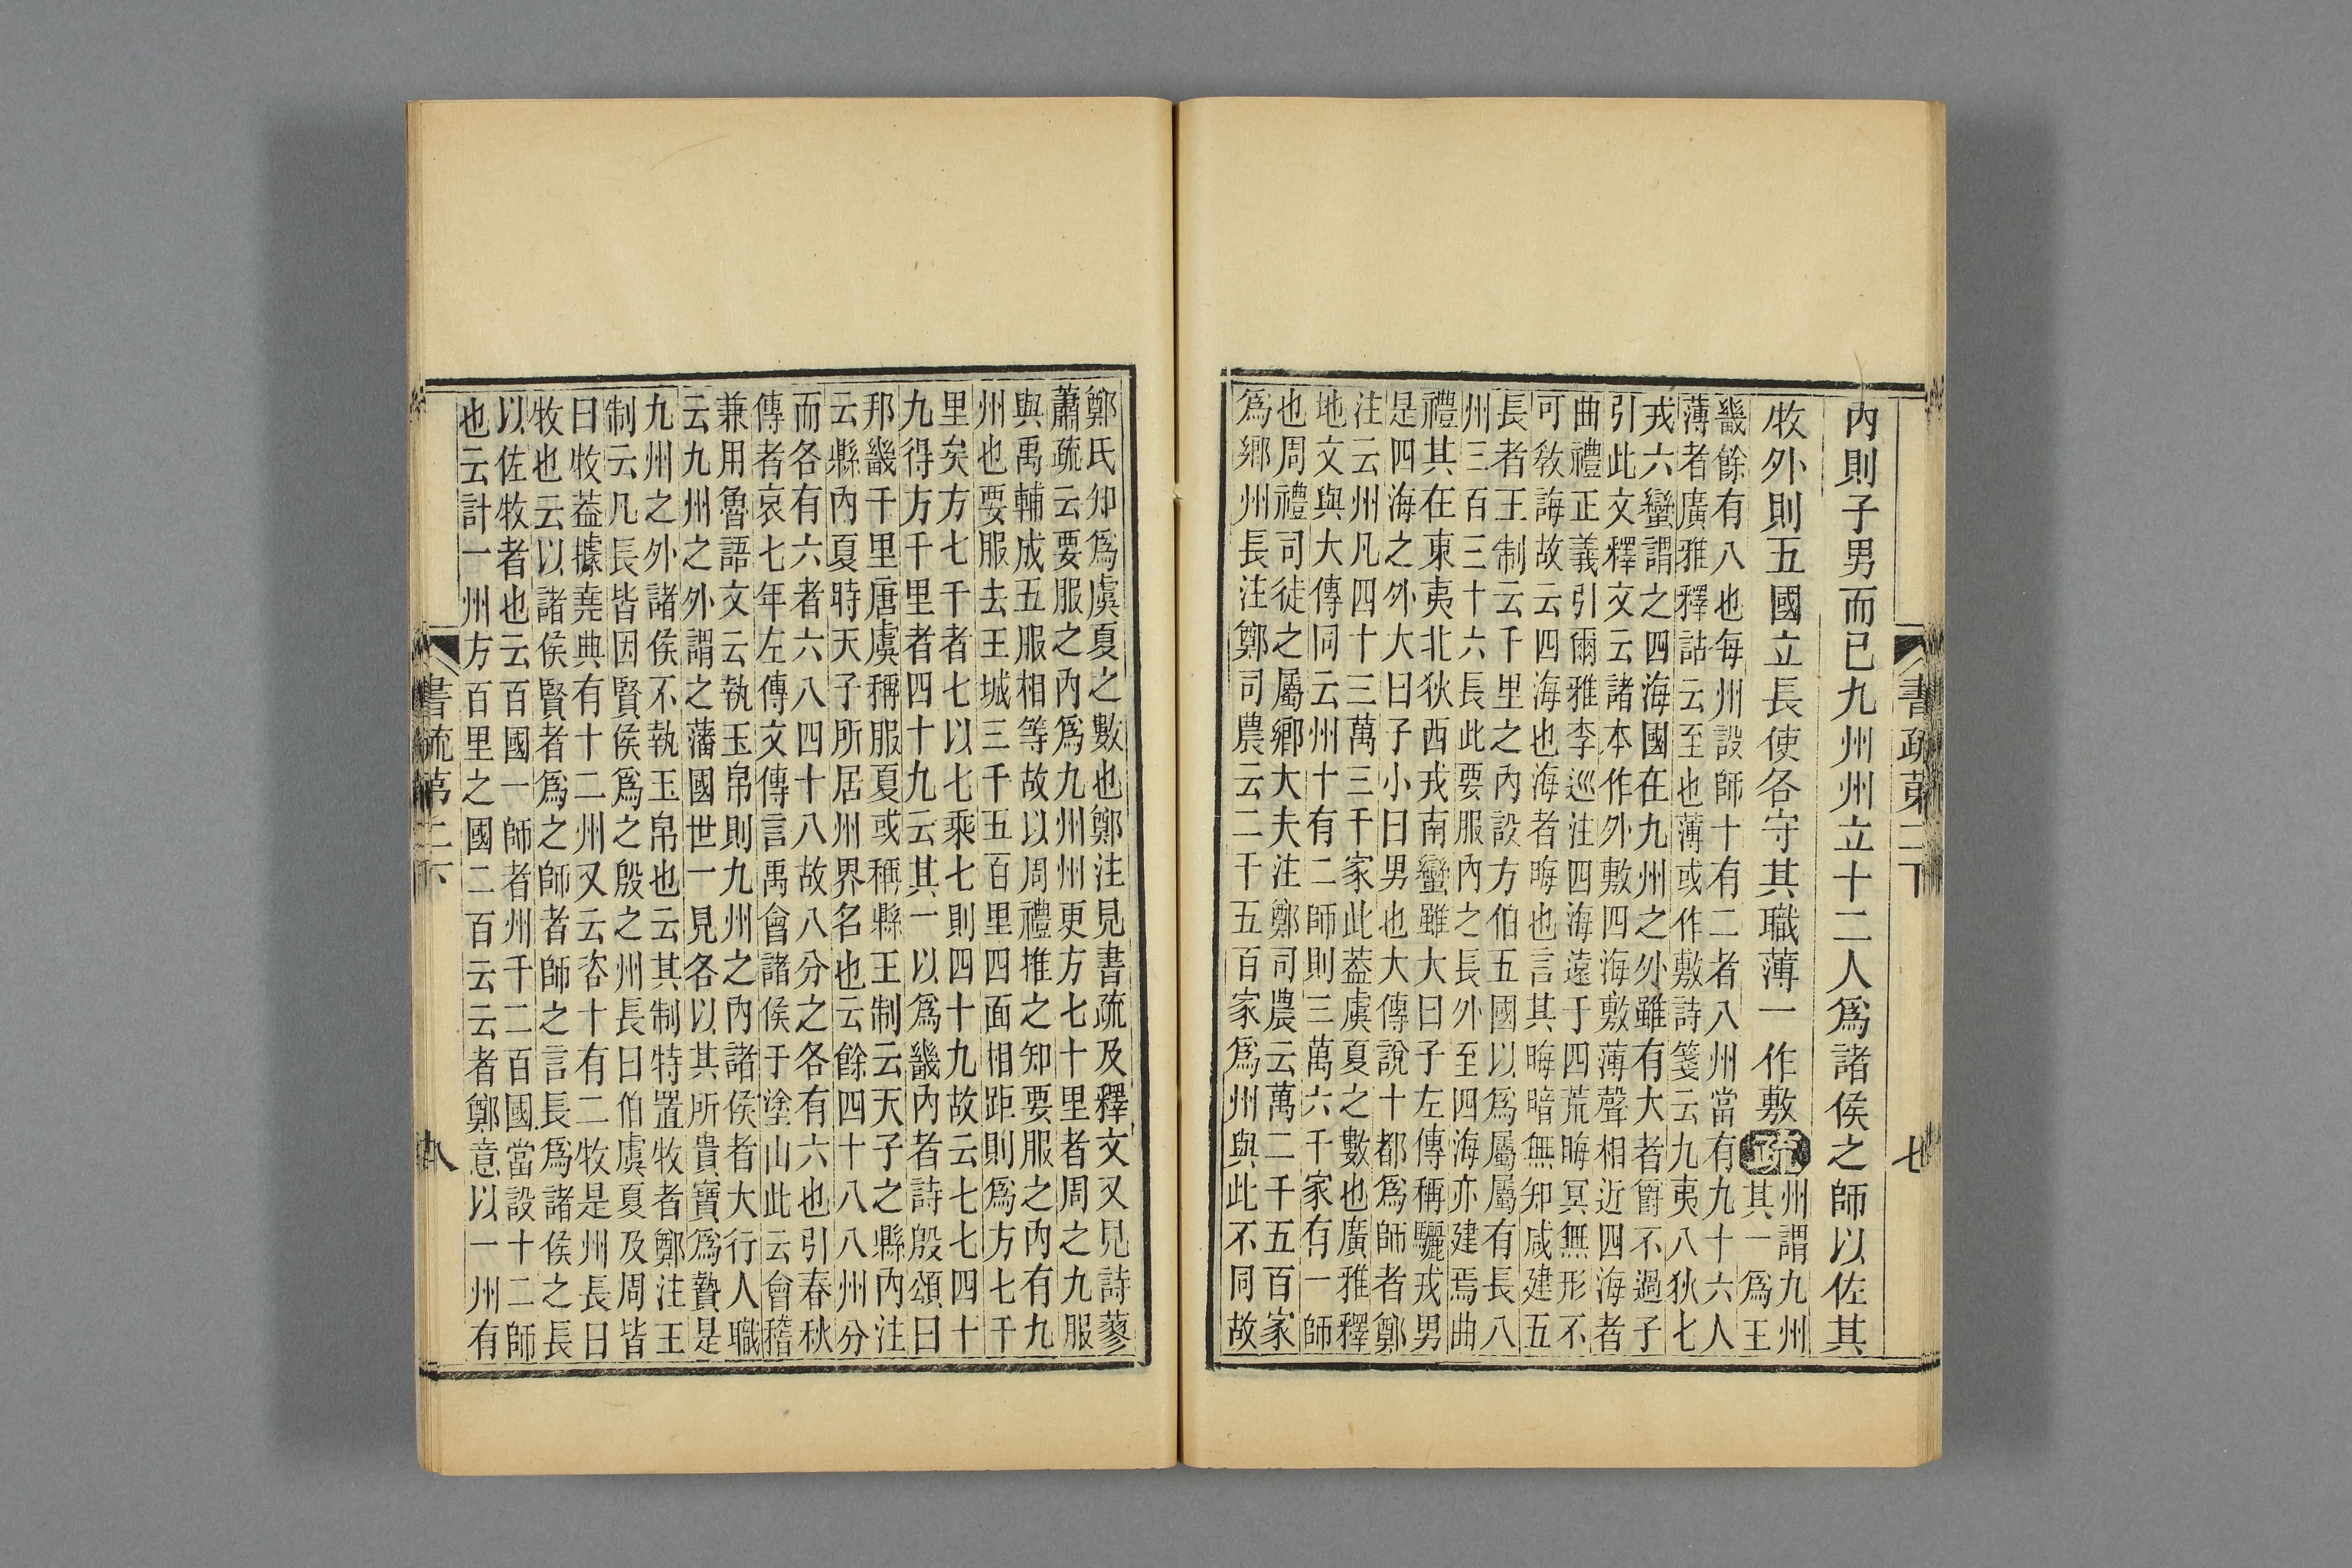 書疏第二下
七
內則子男而已九州州立十二人爲諸侯之師以佐其
牧外則五國立長使各守其職薄一作敷疏
州謂九州
其一爲王
畿餘有八也每州設師十有二者八州當有九十六人
薄者廣雅釋詁云至也薄或作敷詩箋云九夷八狄七
戎六蠻謂之四海國在九州之外雖有大者爵不過子
引此文釋文云諸本作外敷四海敷薄聲相近四海者
曲禮正義引爾雅李巡注四海遠于四荒晦冥無形不
可教誨故云四海也海者晦也言其晦暗無知咸建五
長者王制云千里之內設方伯五國以爲屬屬有長八
州三百三十六長此要服內之長外至四海亦建焉曲
禮其在東夷北狄西戎南蠻雖大曰子左傳稱驪戎男
是四海之外大曰子小曰男也大傳說十都爲師者鄭
注云州凡四十三萬三千家此葢虞夏之數也廣雅釋
地文與大傳同云州十有二師則三萬六千家有一師
也周禮司徒之屬鄉大夫注鄭司農云萬二千五百家
爲鄉州長注鄭司農云二千五百家爲州與此不同故
鄭氏知爲虞夏之數也鄭注見書疏及釋文又見詩蓼
蕭疏云要服之內爲九州州更方七十里者周之九服
與禹輔成五服相等故以周禮堆之知要服之內有九
州也要服去王城三千五百里四面相距則爲方七千
里矣方七千者七以七乘七則四十九故云七七四十
九得方千里者四十九云其一以爲畿內者詩殷頌曰
邦畿千里唐虞稱服夏或稱縣王制云天子之縣內注
云縣內夏時天子所居州界名也云餘四十八八州分
而各有六者六八四十八故八分之各有六也引春秋
傳者哀七年左傳文傳言禹會諸侯于塗山此云會稽
兼用魯語文云執玉帛則九州之內諸侯者大行人職
云九州之外謂之藩國世一見各以其所貴寶爲贄是
九州之外諸侯不執玉帛也云其制特置牧者鄭注王
制云凡長皆因賢侯爲之殷之州長曰伯虞夏及周皆
曰牧葢據堯典有十二州又云咨十有二牧是州長曰
牧也云以諸侯賢者爲之師者師之言長爲諸侯之長
以佐牧者也云百國一師者州千二百國當設十二師
也云計一州方百里之國二百云云者鄭意以一州有
書疏第二下
八